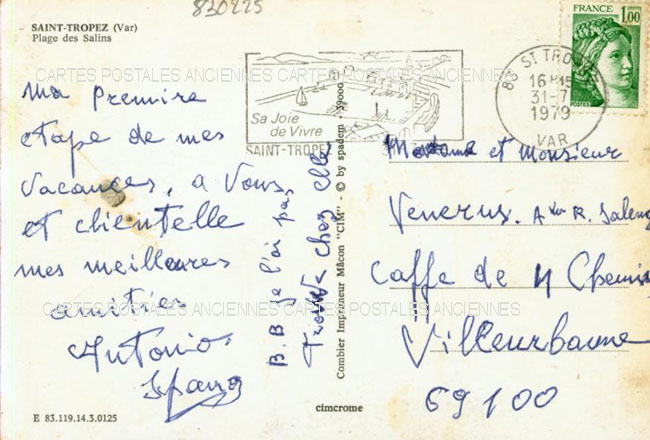 830225
SAINT-TROPEZ (Var)
Plage des Salins
FRANCE
1,00
POSTES
Sa Joie
de Vivre
SAINT-TROPEZ
83 ST TROPEZ
16H15
31-7
1979
VAR
CARTES POSTALES ANCIENNES CARTES POSTALES ANCIENNES
Ma première
etape de mes
vacances, a Vous
et clientelle
mes meilleures
amities
Antonio
B.B je l'ai pas
trouvé chez elle
Combier Imprimeur Mâcon "CIM" - © by spadem - 39000
Madame et Monsieur
Venerus. R. Saleng
Caffe de 4 Chemin
Villeurbanne
69100
CARTES POSTALES ANCIENNES CARTES POSTALES ANCIENNES
E 83.119.14.3.0125
cimcrome